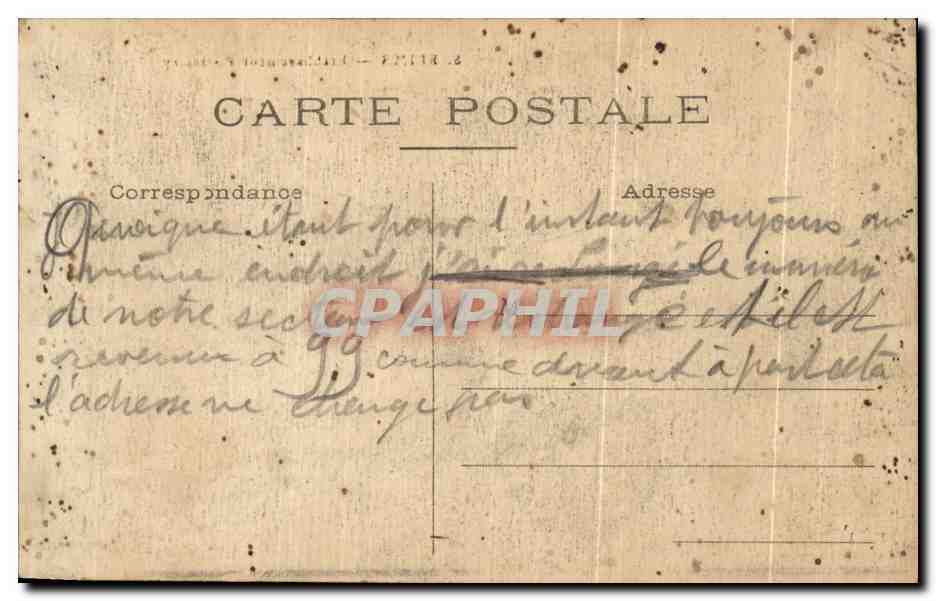 CARTE POSTALE
Correspondance
Adresse
Quoique étant pour l'instant toujours au
même endroit le numéro
de notre secteur est changé et il est
revenu à 99 comme devant à part cela
l'adresse ne change pas
CPAPHIL